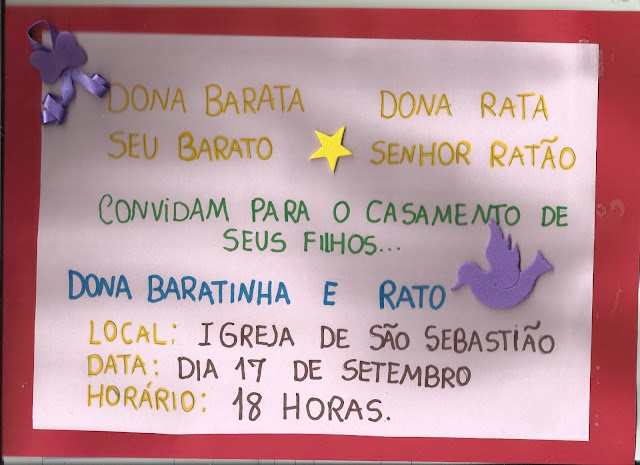 DONA BARATA DONA RATA
SEU BARATO SENHOR RATÃO
CONVIDAM PARA O CASAMENTO DE
SEUS FILHOS...
DONA BARATINHA E RATO
LOCAL: IGREJA DE SÃO SEBASTIÃO
DATA: DIA 17 DE SETEMBRO
HORÁRIO: 18 HORAS.